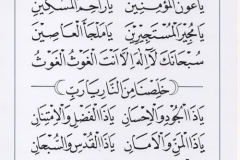 يَاعَوْنَ الْمُؤْمِنِينَ يَارَاحِمَ الْمَسَاكِينَ
يَامُجِيرَ الْمُسْتَجِيرِينَ يَامَلْجَأَ الْعَاصِينَ
سُبْحَانَكَ لَآاِلٰهَ اِلَّااَنْتَ الْغَوْثَ الْغَوْثَ
خَلِّصْنَا مِنَ النَّارِ يَارَبِّ
يَاذَا الْجُودِ وَالْاِحْسَانِ يَاذَا الْفَضْلِ وَالْاِمْتِنَانِ
يَاذَا الْاَمْنِ وَالْاَمَانِ يَاذَا الْقُدْسِ وَالسُّبْحَانِ